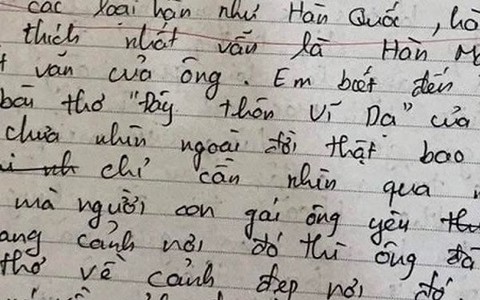 các loại hạn như Hàn Quốc, hò
thích nhất vẫn là Hàn M
văn của ông. Em biết đến
bài thơ "Đây thôn Vĩ Dạ" của
chưa nhìn ngoài đời thật bao
chỉ cần nhìn qua
mà người con gái ông yêu
ang cảnh nơi đó thì ông đã
thơ về cảnh đẹp nơi đó